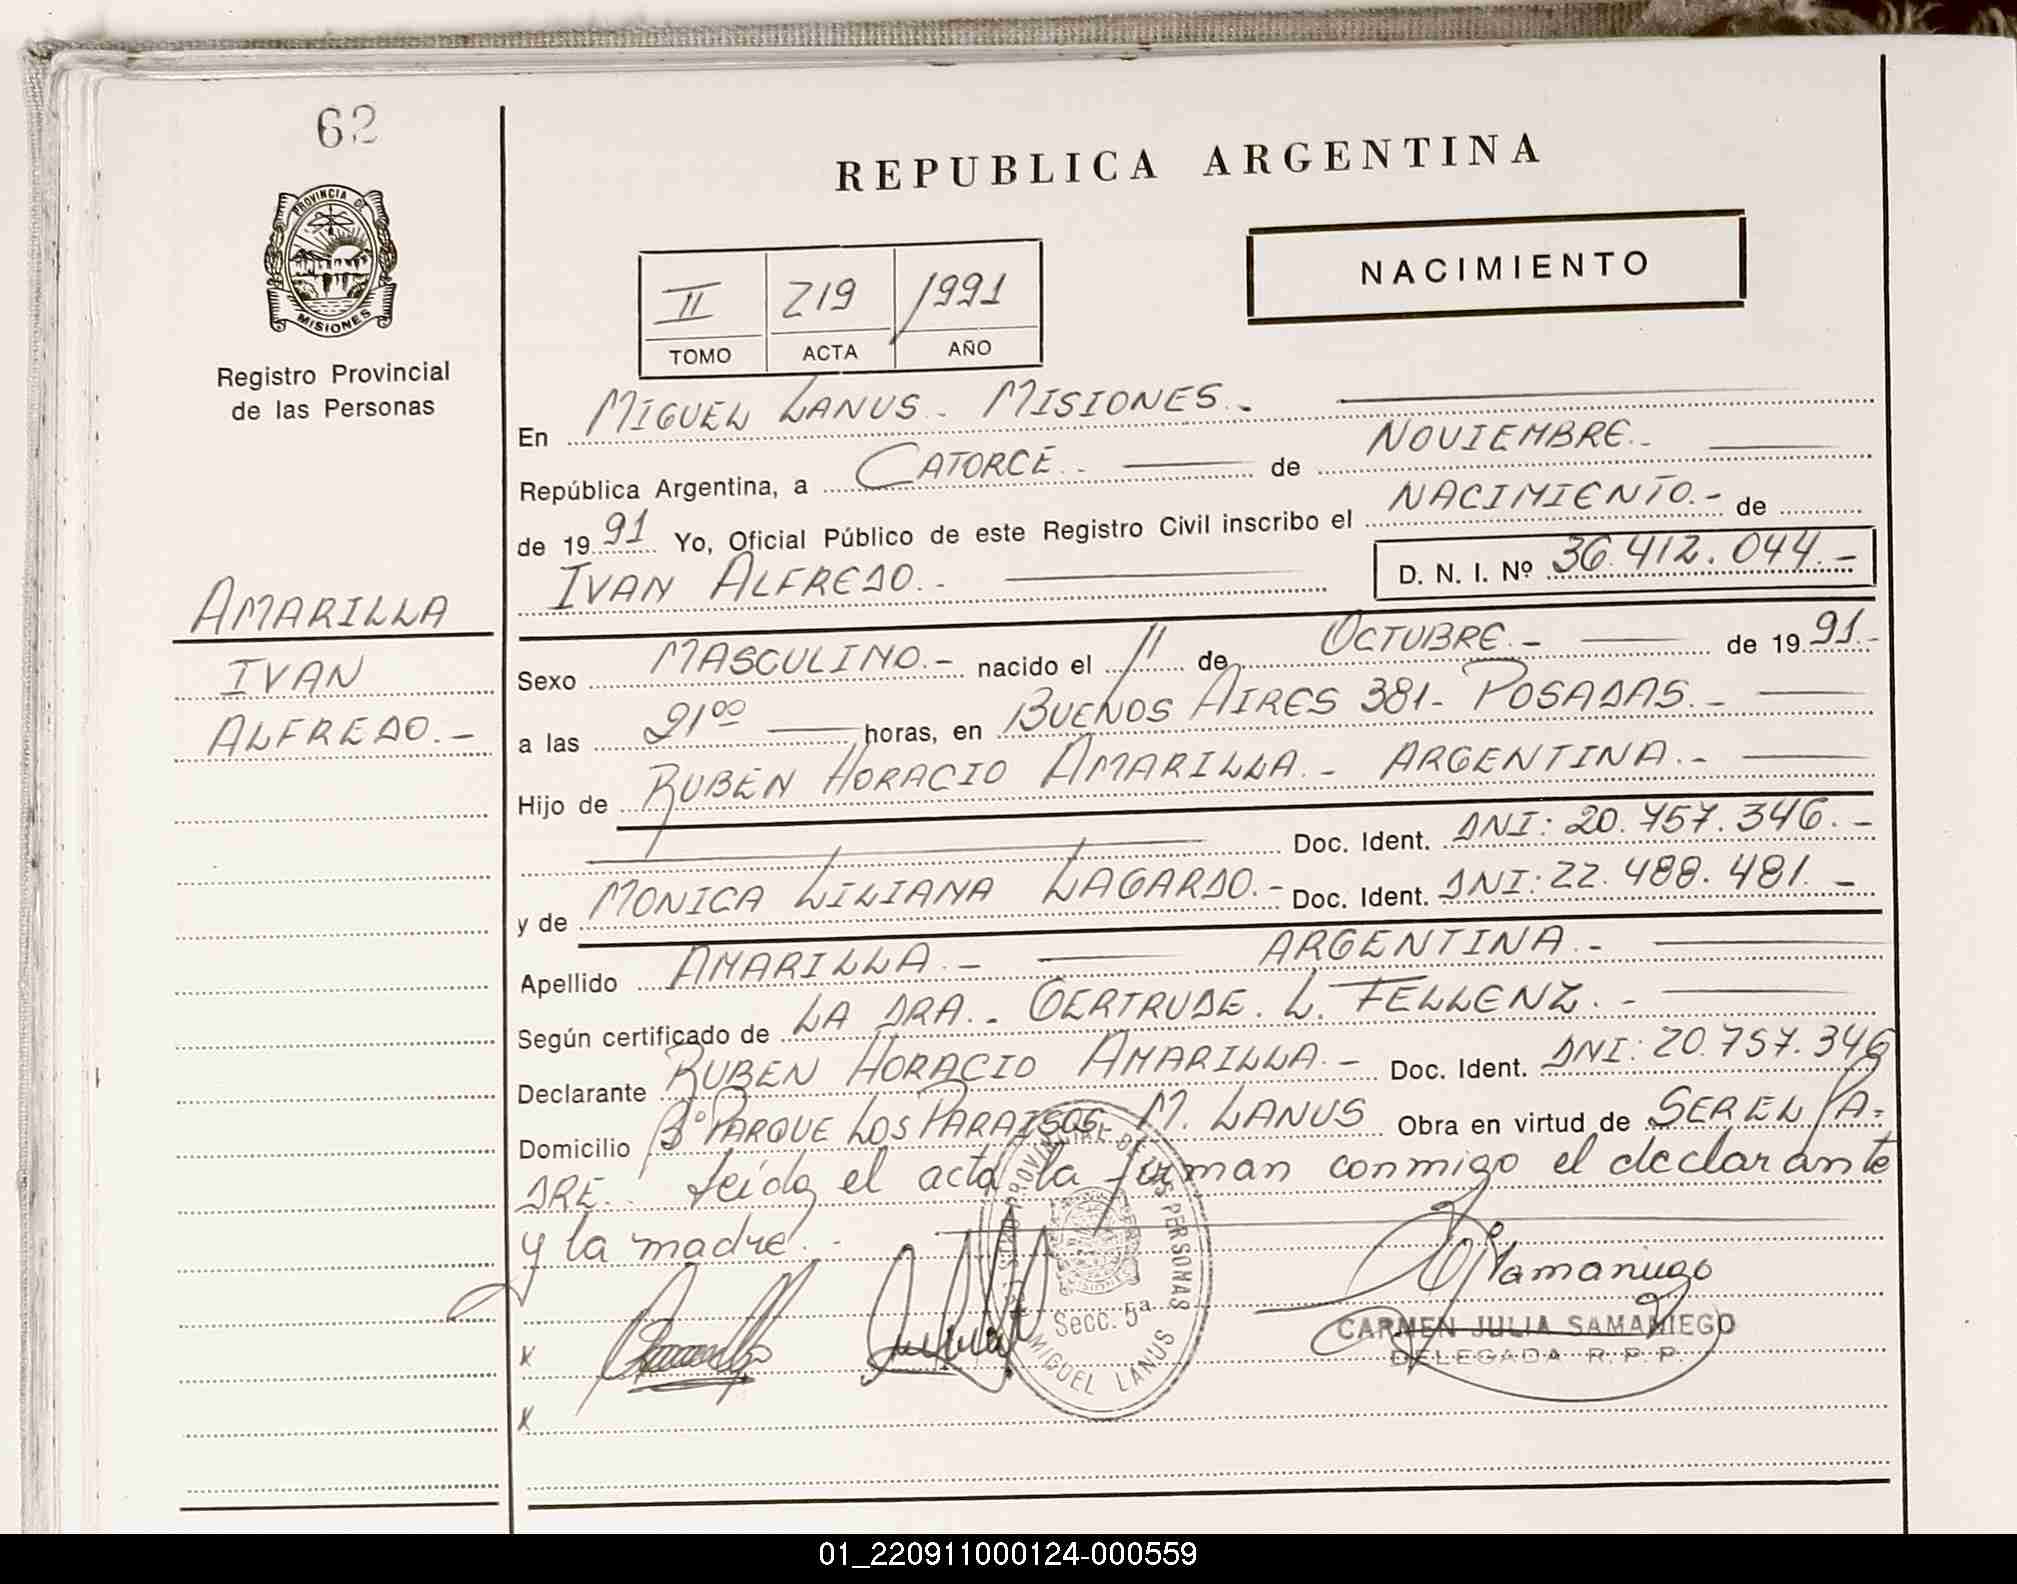 62
REPUBLICA ARGENTINA
PROVINCIA DE
MISIONES
NACIMIENTO
II 219 1991
TOMO ACTA AÑO
Registro Provincial
de las Personas
En MIGUEL LANUS.- MISIONES.-
República Argentina, a CATORCE.- de NOVIEMBRE.-
de 1991 Yo, Oficial Público de este Registro Civil inscribo el NACIMIENTO.- de
IVAN ALFREDO.- D. N. I. Nº 36.412.044.-
AMARILLA
IVAN
ALFREDO.-
Sexo MASCULINO.- nacido el 11 de OCTUBRE.- de 1991.-
a las 21⁰⁰ horas, en BUENOS AIRES 381- POSADAS.-
Hijo de RUBEN HORACIO AMARILLA.- ARGENTINA.-
Doc. Ident. DNI: 20.757.346.-
y de MONICA LILIANA LAGARDO.- Doc. Ident. DNI: 22.488.481.-
Apellido AMARILLA.- ARGENTINA.-
Según certificado de LA DRA.- GERTRUDE. L. FELLENZ.-
Declarante RUBEN HORACIO AMARILLA.- Doc. Ident. DNI: 20.757.346
Domicilio Bº PARQUE LOS PARAISOS- M. LANUS Obra en virtud de SER EL PA=
DRE.. Leida el acta la firman conmigo el declarante
y la madre.-
PROVINCIAL DE LAS PERSONAS
MISIONES
Secc. 5ª
MIGUEL LANUS
x
x
Samaniego
CARMEN JULIA SAMANIEGO
DELEGADA R. P. P.
01_220911000124-000559